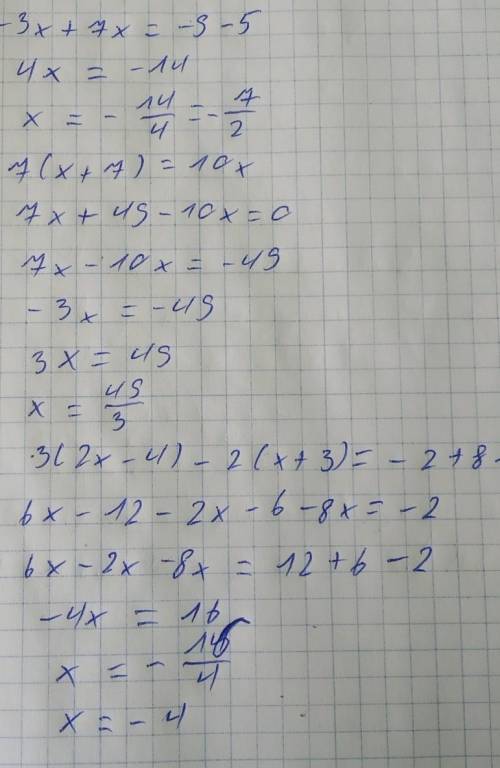 -3x + 7x = -9 - 5
4x = -14
x = - 14/4 = - 7/2
7(x + 7) = 10x
7x + 49 - 10x = 0
7x - 10x = -49
- 3x = -49
3x = 49
x = 49/3
3(2x - 4) - 2(x + 3) = - 2 + 8
6x - 12 - 2x - 6 - 8x = -2
6x - 2x - 8x = 12 + 6 - 2
-4x = 16
x = - 16/4
x = - 4